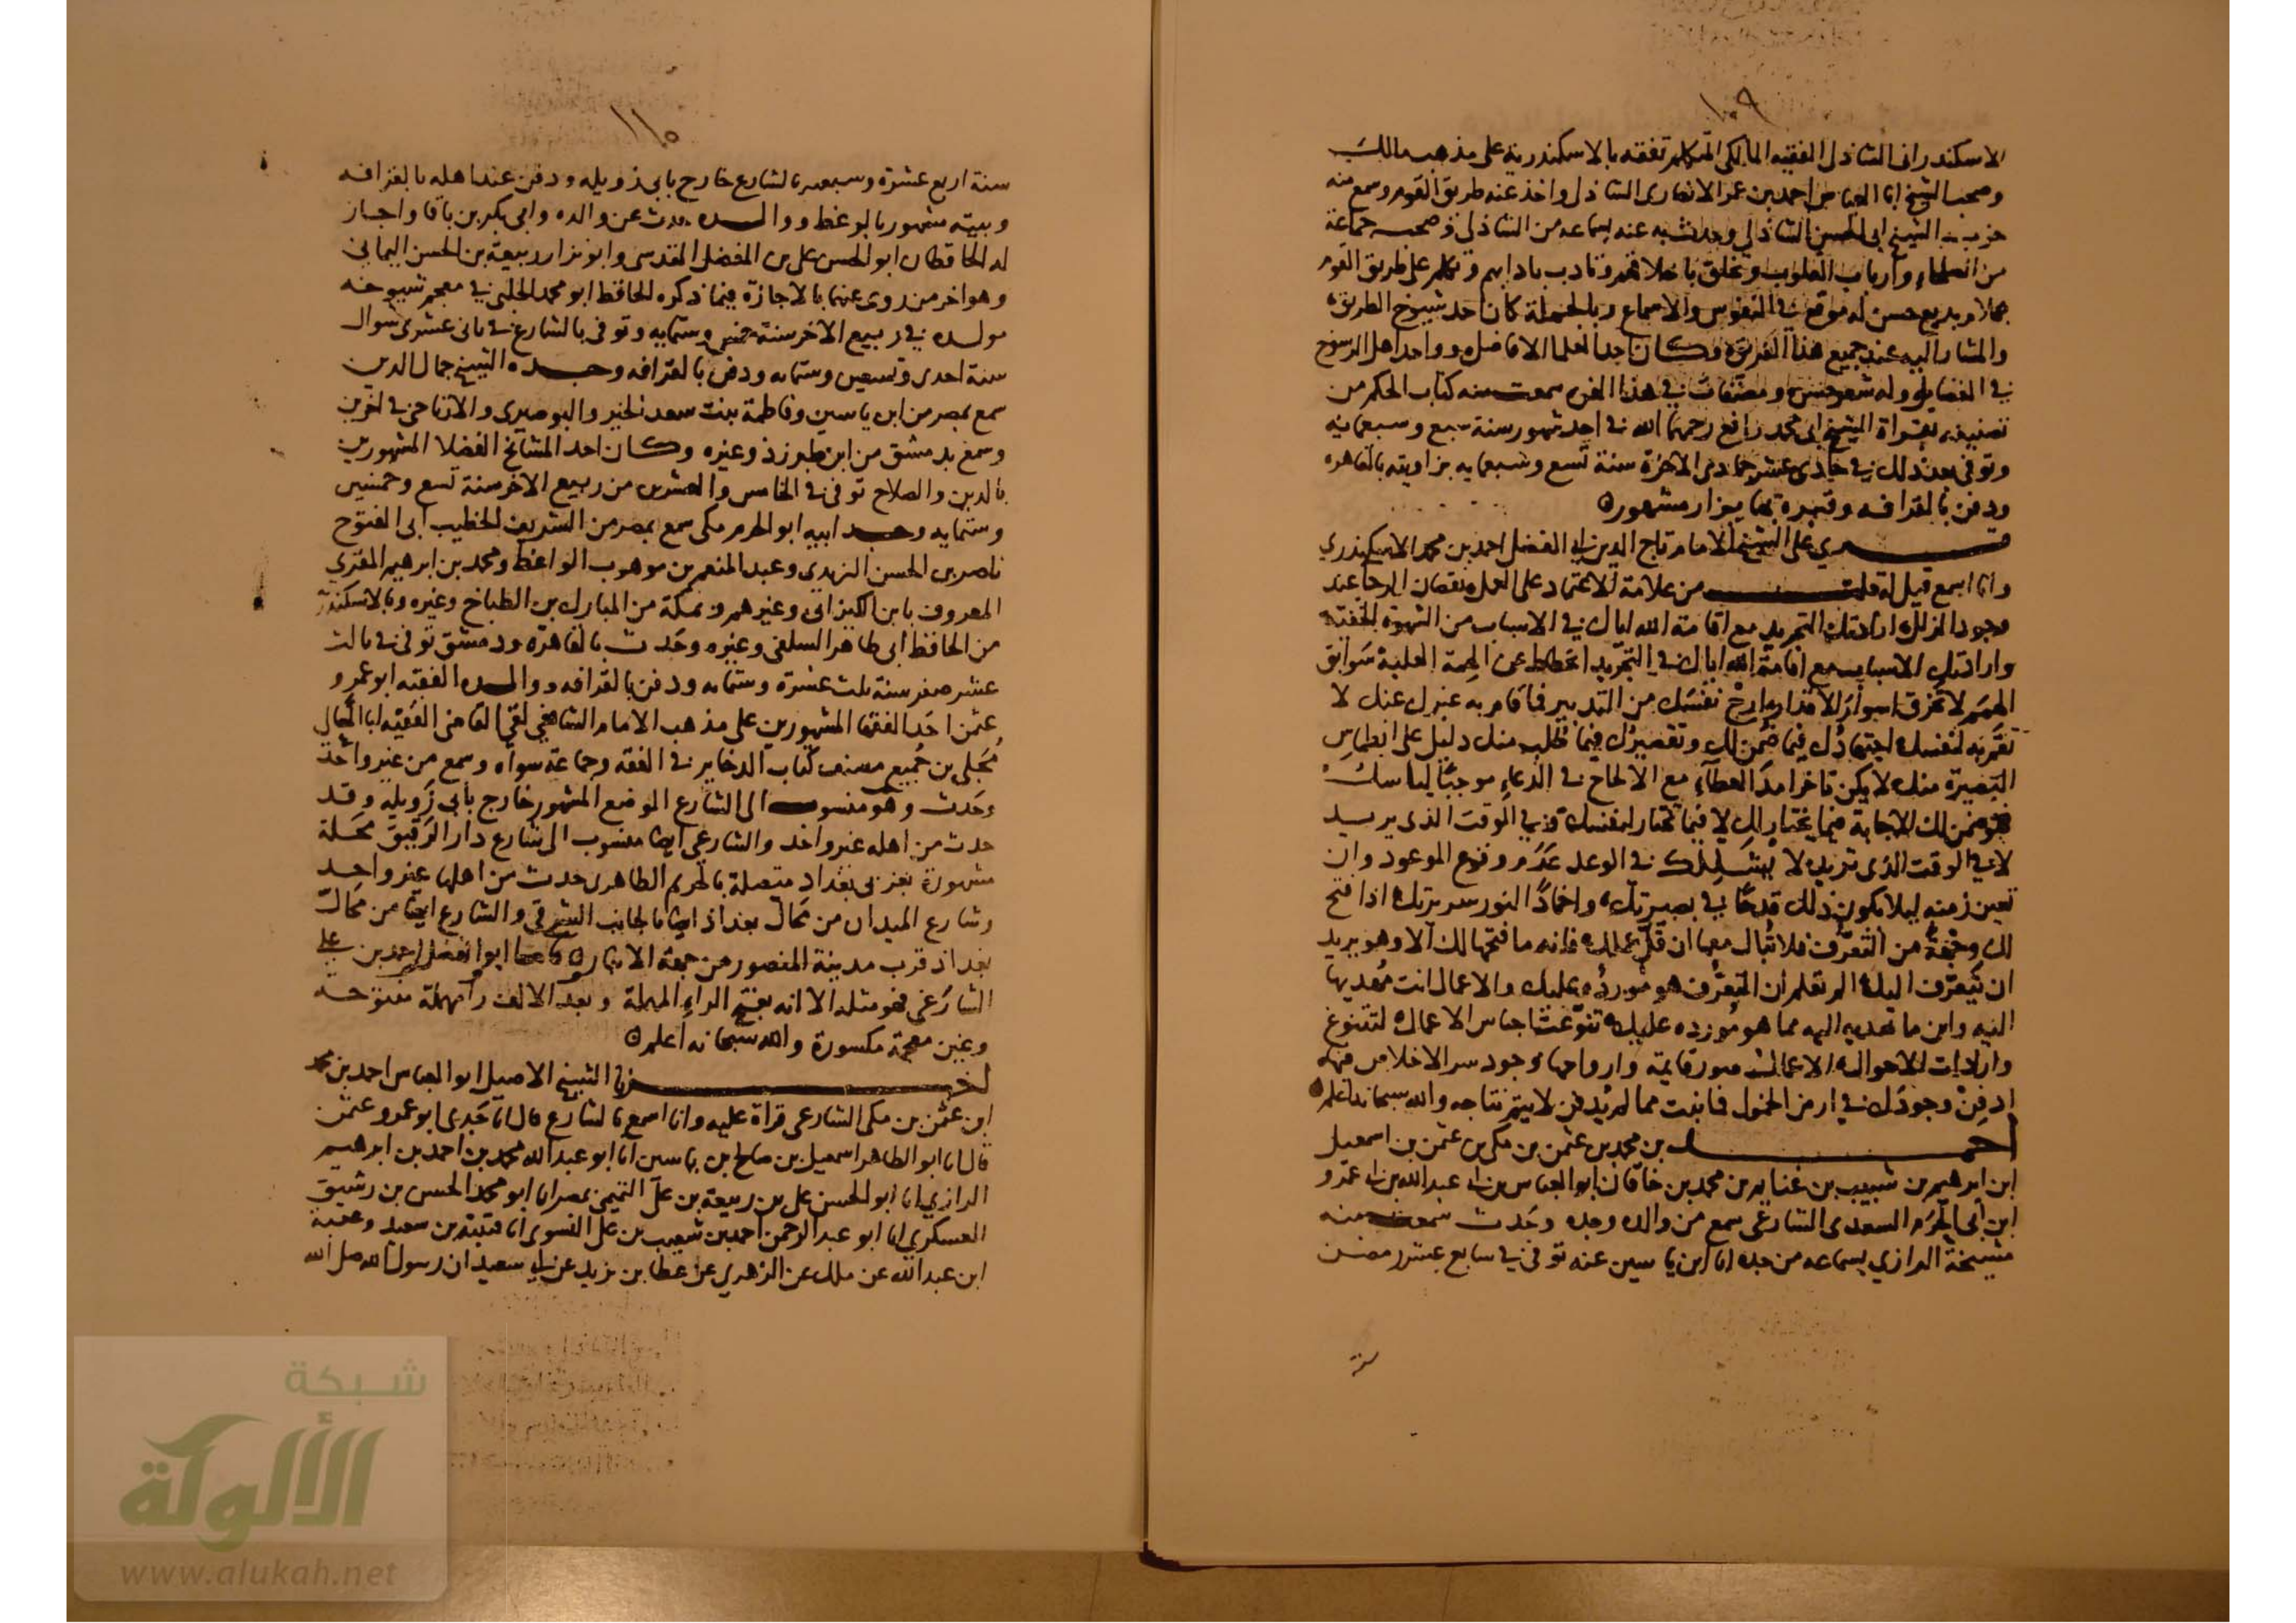 ١٠٩
الاسكندرانى الشاذلى الفقيه المالكى المتكلم تفقه بالاسكندرية على مذهب مالك
وصحب الشيخ ابا العباس احمد بن عمر الانصارى الشاذلى واخذ عنه طريق القوم وسمع منه
حزب الشيخ ابى الحسن الشاذلى وحدث به عنه بسماعه من الشاذلى وصحب جماعة
من العلماء وارباب القلوب وتخلق باخلاقهم وتادب بادابهم وتكلم على طريق القوم
بكلام بديع حسن له موقع فى النفوس والاسماع وبالجملة كان احد شيوخ الطريق
والمشار اليه عند جميع هذا الفريق وكان احد العلما الافاضل وواحد اهل الرسوخ
فى الفضايل وله شعر حسن ومصنفات فى هذا الفن سمعت منه كتاب الحكم من
تصنيفه بقراة الشيخ ابى محمد رافع رحمهما الله فى احد شهور سنة سبع وسبعمايه
وتوفى بعد ذلك فى حادى عشر جمادى الاخرة سنة تسع وسبعمايه بزاويته بالقاهره
ودفن بالقرافه وقبره بها يزار مشهور
قرى على الشيخ الامام تاج الدين ابى الفضل احمد بن محمد الاسكندرى
وانا اسمع قيل له قلت من علامة الاعتماد على العمل نقصان الرجا عند
وجود الزلل ارادتك التجريد مع اقامة الله اياك فى الاسباب من الشهوة الخفية
وارادتك الاسباب مع اقامة الله اياك فى التجريد انحطاط عن الهمة العلية سوابق
الهمم لا تخرق اسوار الاقدار ارح نفسك من التدبير فما قام به غيرك عنك لا
تقم به لنفسك اجتهادك فيما ضمن لك وتقصيرك فيما طلب منك دليل على انطماس
البصيرة منك لا يكن تاخر امد العطآء مع الالحاح فى الدعاء موجبا لياسك
فهو ضمن لك الاجابة فيما يختار لك لا فيما تختار لنفسك وفى الوقت الذى يريد
لا فى الوقت الذى تريد لا يشككنك فى الوعد عدم وقوع الموعود وان
تعين زمنه ليلا يكون ذلك قدحا فى بصيرتك واخمادا لنور سريرتك اذا فتح
لك وجهة من التعرف فلا تبال معها ان قل عملك فانه ما فتحها لك الا وهو يريد
ان يتعرف اليك الم تعلم ان التعرف هو مورده عليك والاعمال انت مهديها
اليه واين ما تهديه اليه مما هو مورده عليك تنوعت اجناس الاعمال لتنوع
واردات الاحوال الاعمال صور قايمة وارواحها وجود سر الاخلاص فيها
ادفن وجودك فى ارض الخمول فما نبت مما لم يدفن لا يتم نتاجه والله سبحانه اعلم
احمد بن محمد بن عثمن بن مكى بن عثمن بن اسمعيل
ابن ابرهيم بن شبيب بن غنايم بن محمد بن خاقان ابو العباس بن ابى عبد الله بن ابى عمرو
ابن ابى الحرم السعدى الشارعى سمع من والده وجده وحدث سمعت منه
مشيخة الرازى بسماعه من جده انا ابن ياسين عنه توفى فى سابع عشر رمضان
١١٠
سنة اربع عشرة وسبعمايه بالشارع خارج بابى زويله ودفن عند اهله بالقرافه
وبيته مشهور بالوعظ ووالده حدث عن والده وابى بكر بن باقا واجاز
له الحافظان ابو الحسن على بن المفضل المقدسى وابو نزار ربيعة بن الحسن اليمانى
وهو اخر من روى عنهما بالاجازة فيما ذكره الحافظ ابو محمد الحلبى فى معجم شيوخه
مولده فى ربيع الاخر سنة خمس وستمايه وتوفى بالشارع فى ثانى عشرى شوال
سنة احدى وتسعين وستمايه ودفن بالقرافه وجده الشيخ جمال الدين
سمع بمصر من ابن ياسين وفاطمة بنت سعد الخير والبوصيرى والارتاحى فى اخرين
وسمع بدمشق من ابن طبرزذ وغيره وكان احد المشائخ الفضلا المشهورين
بالدين والصلاح توفى فى الخامس والعشرين من ربيع الاخر سنة تسع وخمسين
وستمايه وجد ابيه ابو الحرم مكى سمع بمصر من الشريف الخطيب ابى الفتوح
ناصر بن الحسن الزيدى وعبد المنعم بن موهوب الواعظ ومحمد بن ابرهيم المقرى
المعروف بابن الكيزانى وغيرهم وبمكة من المبارك بن الطباخ وغيره وبالاسكندرية
من الحافظ ابى طاهر السلفى وغيره وحدث بالقاهرة ودمشق توفى فى ثالث
عشر صفر سنة ثلث عشرة وستمايه ودفن بالقرافه ووالده الفقيه ابو عمرو
عثمن احد الفقها المشهورين على مذهب الامام الشافعى لقى القاضى الفقيه ابا المعالى
مجلى بن جميع مصنف كتاب الذخاير فى الفقه وجماعة سواه وسمع من غير واحد
وحدث وهو منسوب الى الشارع الموضع المشهور خارج بابى زويله وقد
حدث من اهله غير واحد والشارعى ايضا منسوب الى شارع دار الرقيق محلة
مشهورة بغربى بغداد متصلة بالحريم الطاهرى حدث من اهلها غير واحد
وشارع الميدان من محال بغداد ايضا بالجانب الشرقى والشارع ايضا من محال
بغداد قرب مدينة المنصور من جهة الانبار واما ابو الفضل احمد بن على
الشارغى فهو مثله الا انه بفتح الراء المهملة وبعد الالف رآ مهملة مفتوحة
وغين معجمة مكسورة والله سبحانه اعلم
اخبرنا الشيخ الاصيل ابو العباس احمد بن محمد
ابن عثمن بن مكى الشارعى قراة عليه وانا اسمع بالشارع قال انا جدى ابو عمرو عثمن
قال انا ابو الطاهر اسمعيل بن صالح بن ياسين انا ابو عبد الله محمد بن احمد بن ابرهيم
الرازى انا ابو الحسن على بن ربيعة بن على التميمى بمصر انا ابو محمد الحسن بن رشيق
العسكرى انا ابو عبد الرحمن احمد بن شعيب بن على النسوى انا قتيبة بن سعيد وعتبة
ابن عبد الله عن ملك عن الزهرى عن عطا بن يزيد عن ابى سعيد ان رسول الله صلى الله
شبكة
الألوكة
www.alukah.net